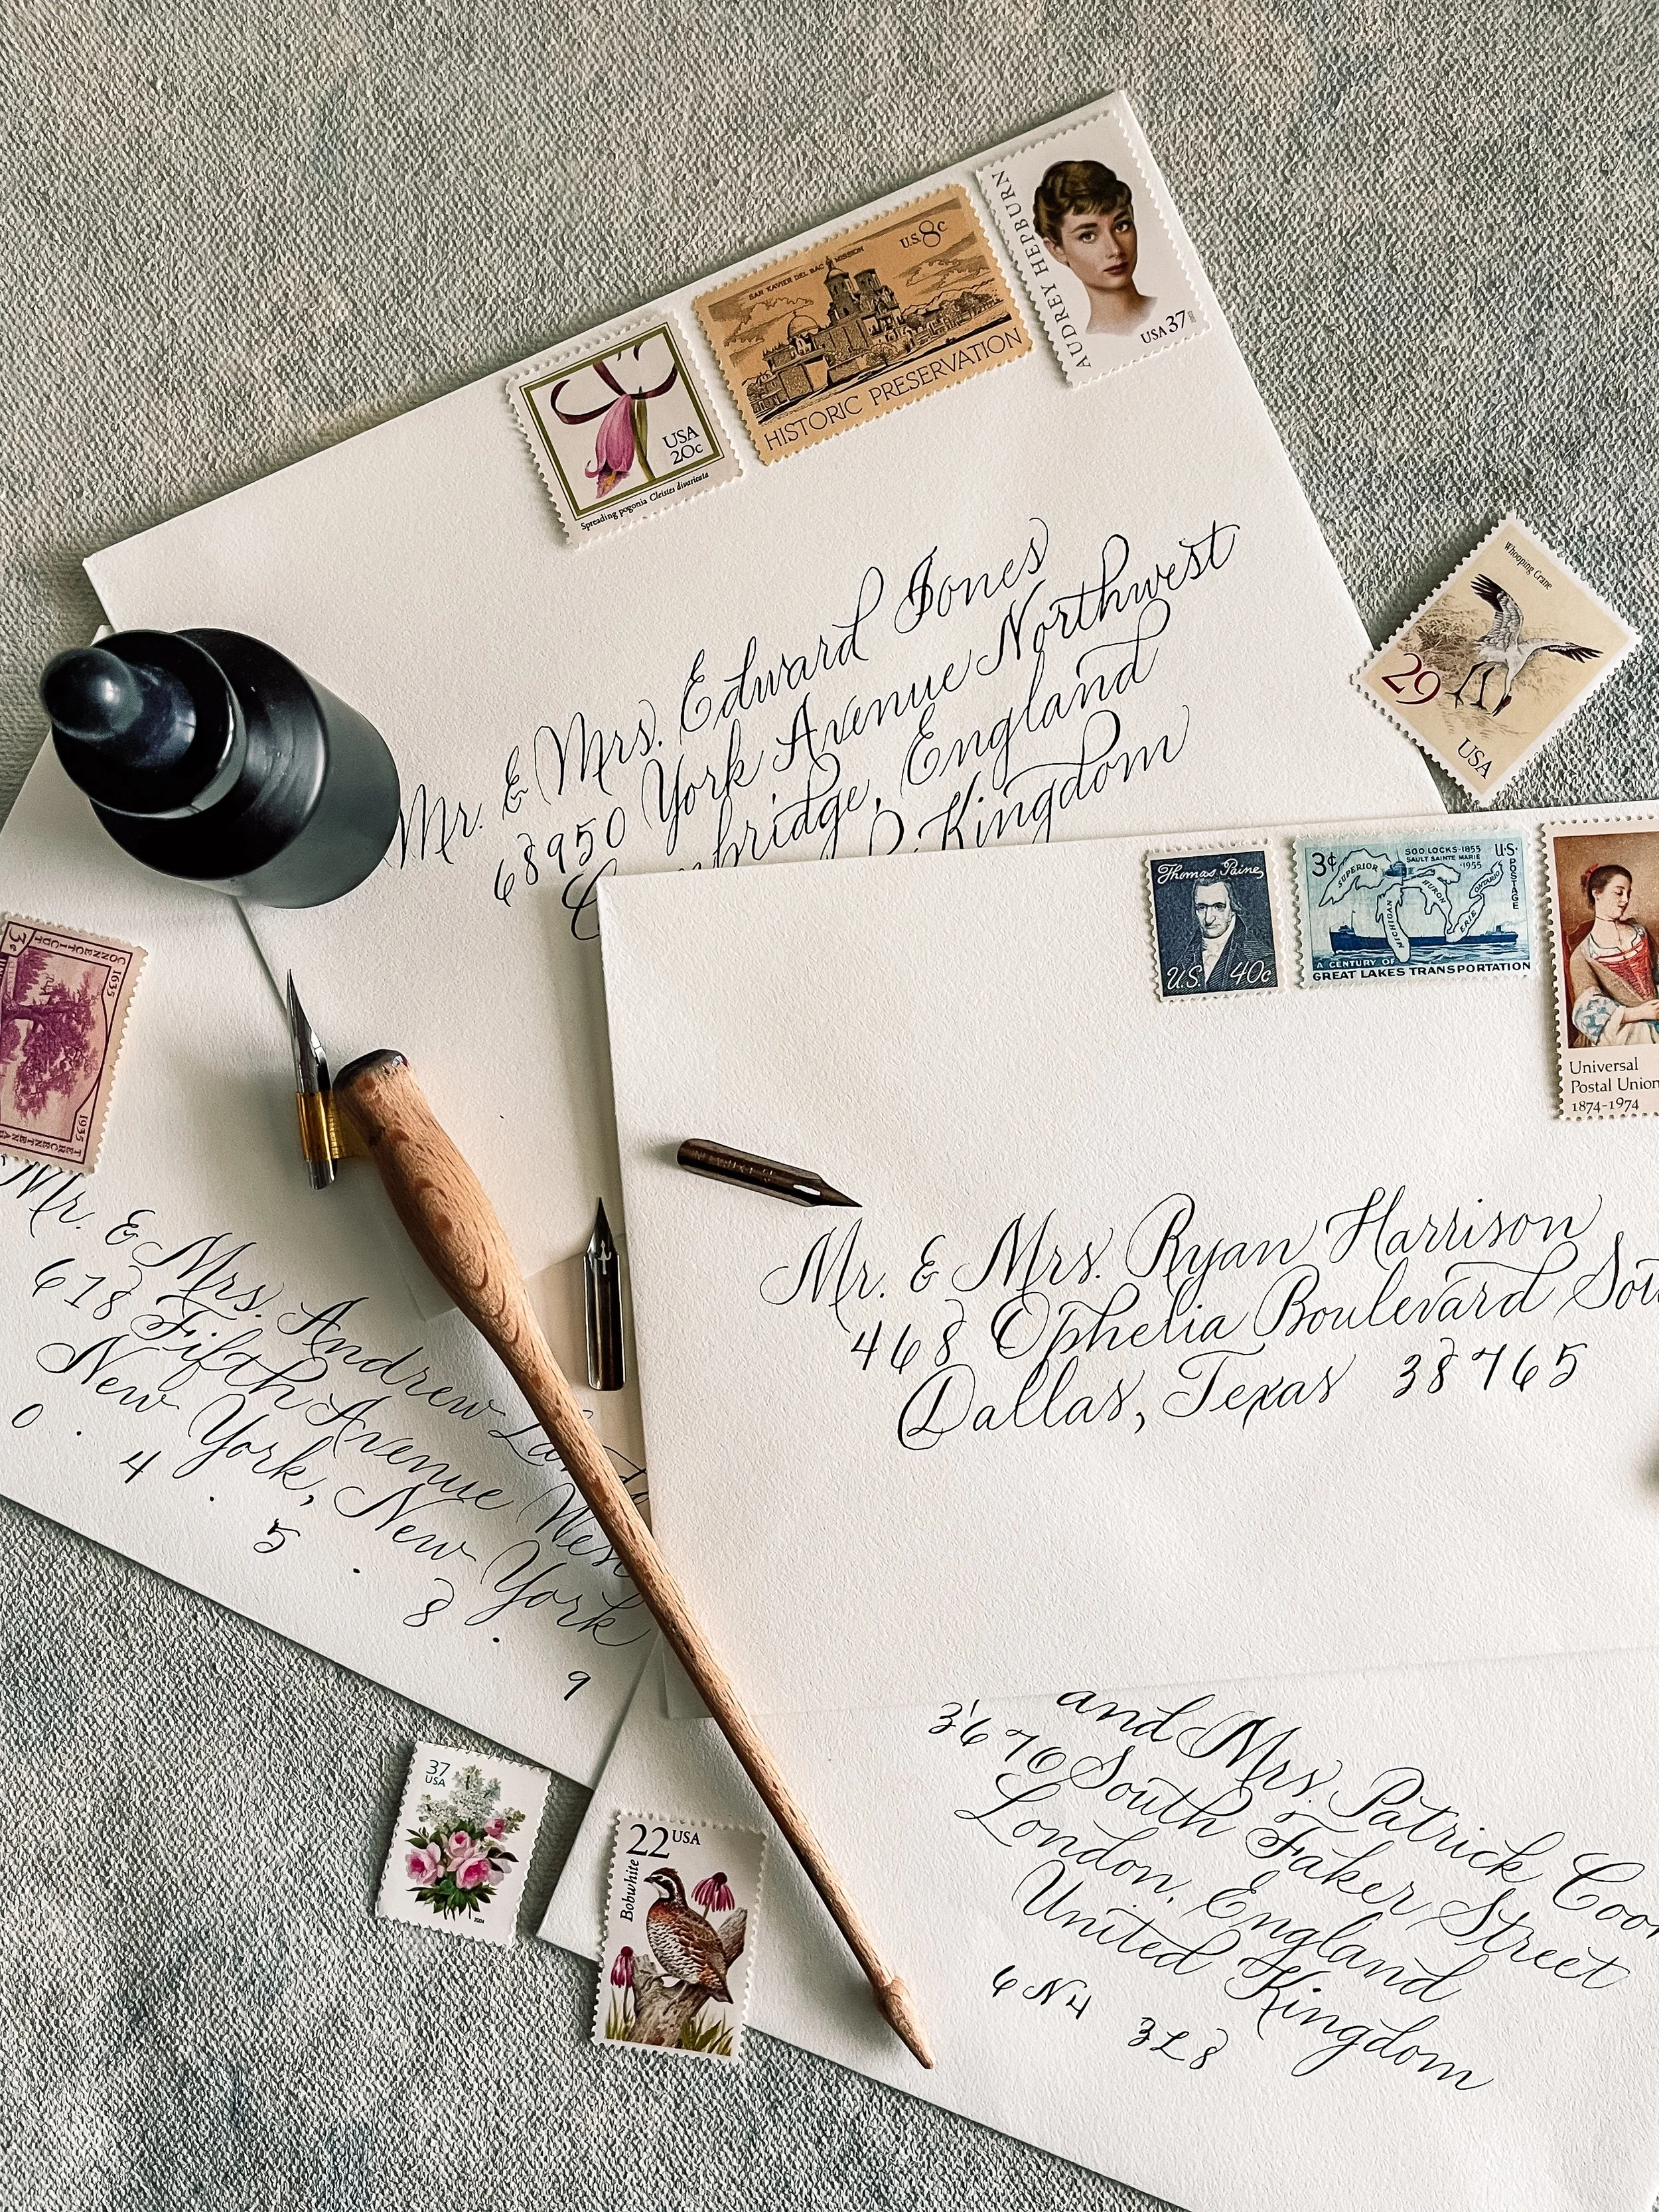 AUDREY HEPBURN
USA 37
SAN XAVIER DEL BAC MISSION
U.S. 8c
HISTORIC PRESERVATION
USA
20c
Spreading pogonia Cleistes divaricata
Mr. & Mrs. Edward Jones
68950 York Avenue Northwest
England
Kingdom
Whooping Crane
29
USA
Thomas Paine
U.S. 40c
3¢
SOO LOCKS·1855
SAULT SAINTE MARIE
·1955
U·S·
POSTAGE
SUPERIOR
MICHIGAN
HURON
ERIE
ONTARIO
A CENTURY OF
GREAT LAKES TRANSPORTATION
Universal
Postal Union
1874-1974
Mr. & Mrs. Ryan Harrison
468 Ophelia Boulevard
Dallas, Texas 38765
3¢
CONNECTICUT
1635
1935
Mr. & Mrs. Andrew
618 Fifth Avenue West
New York, New York
0 . 4 . 5 . 8 . 9
and Mrs. Patrick
3670 South Faker Street
London, England
United Kingdom
6N4 3L8
37
USA
2004
22 USA
Bobwhite